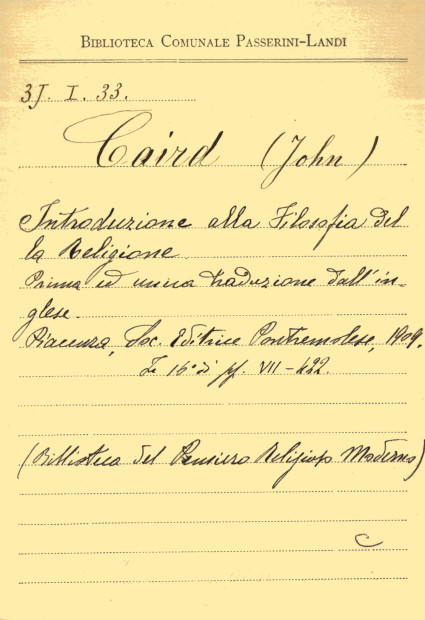 BIBLIOTECA COMUNALE PASSERINI-LANDI
3J. I. 33.
Caird (John)
Introduzione alla Filosofia del
la Religione
Prima ed unica traduzione dall'in-
glese.
Piacenza, Soc. Editrice Pontremolese, 1909.
In 16° di pp. VII-422.
(Biblioteca del Pensiero Religioso Moderno)
C